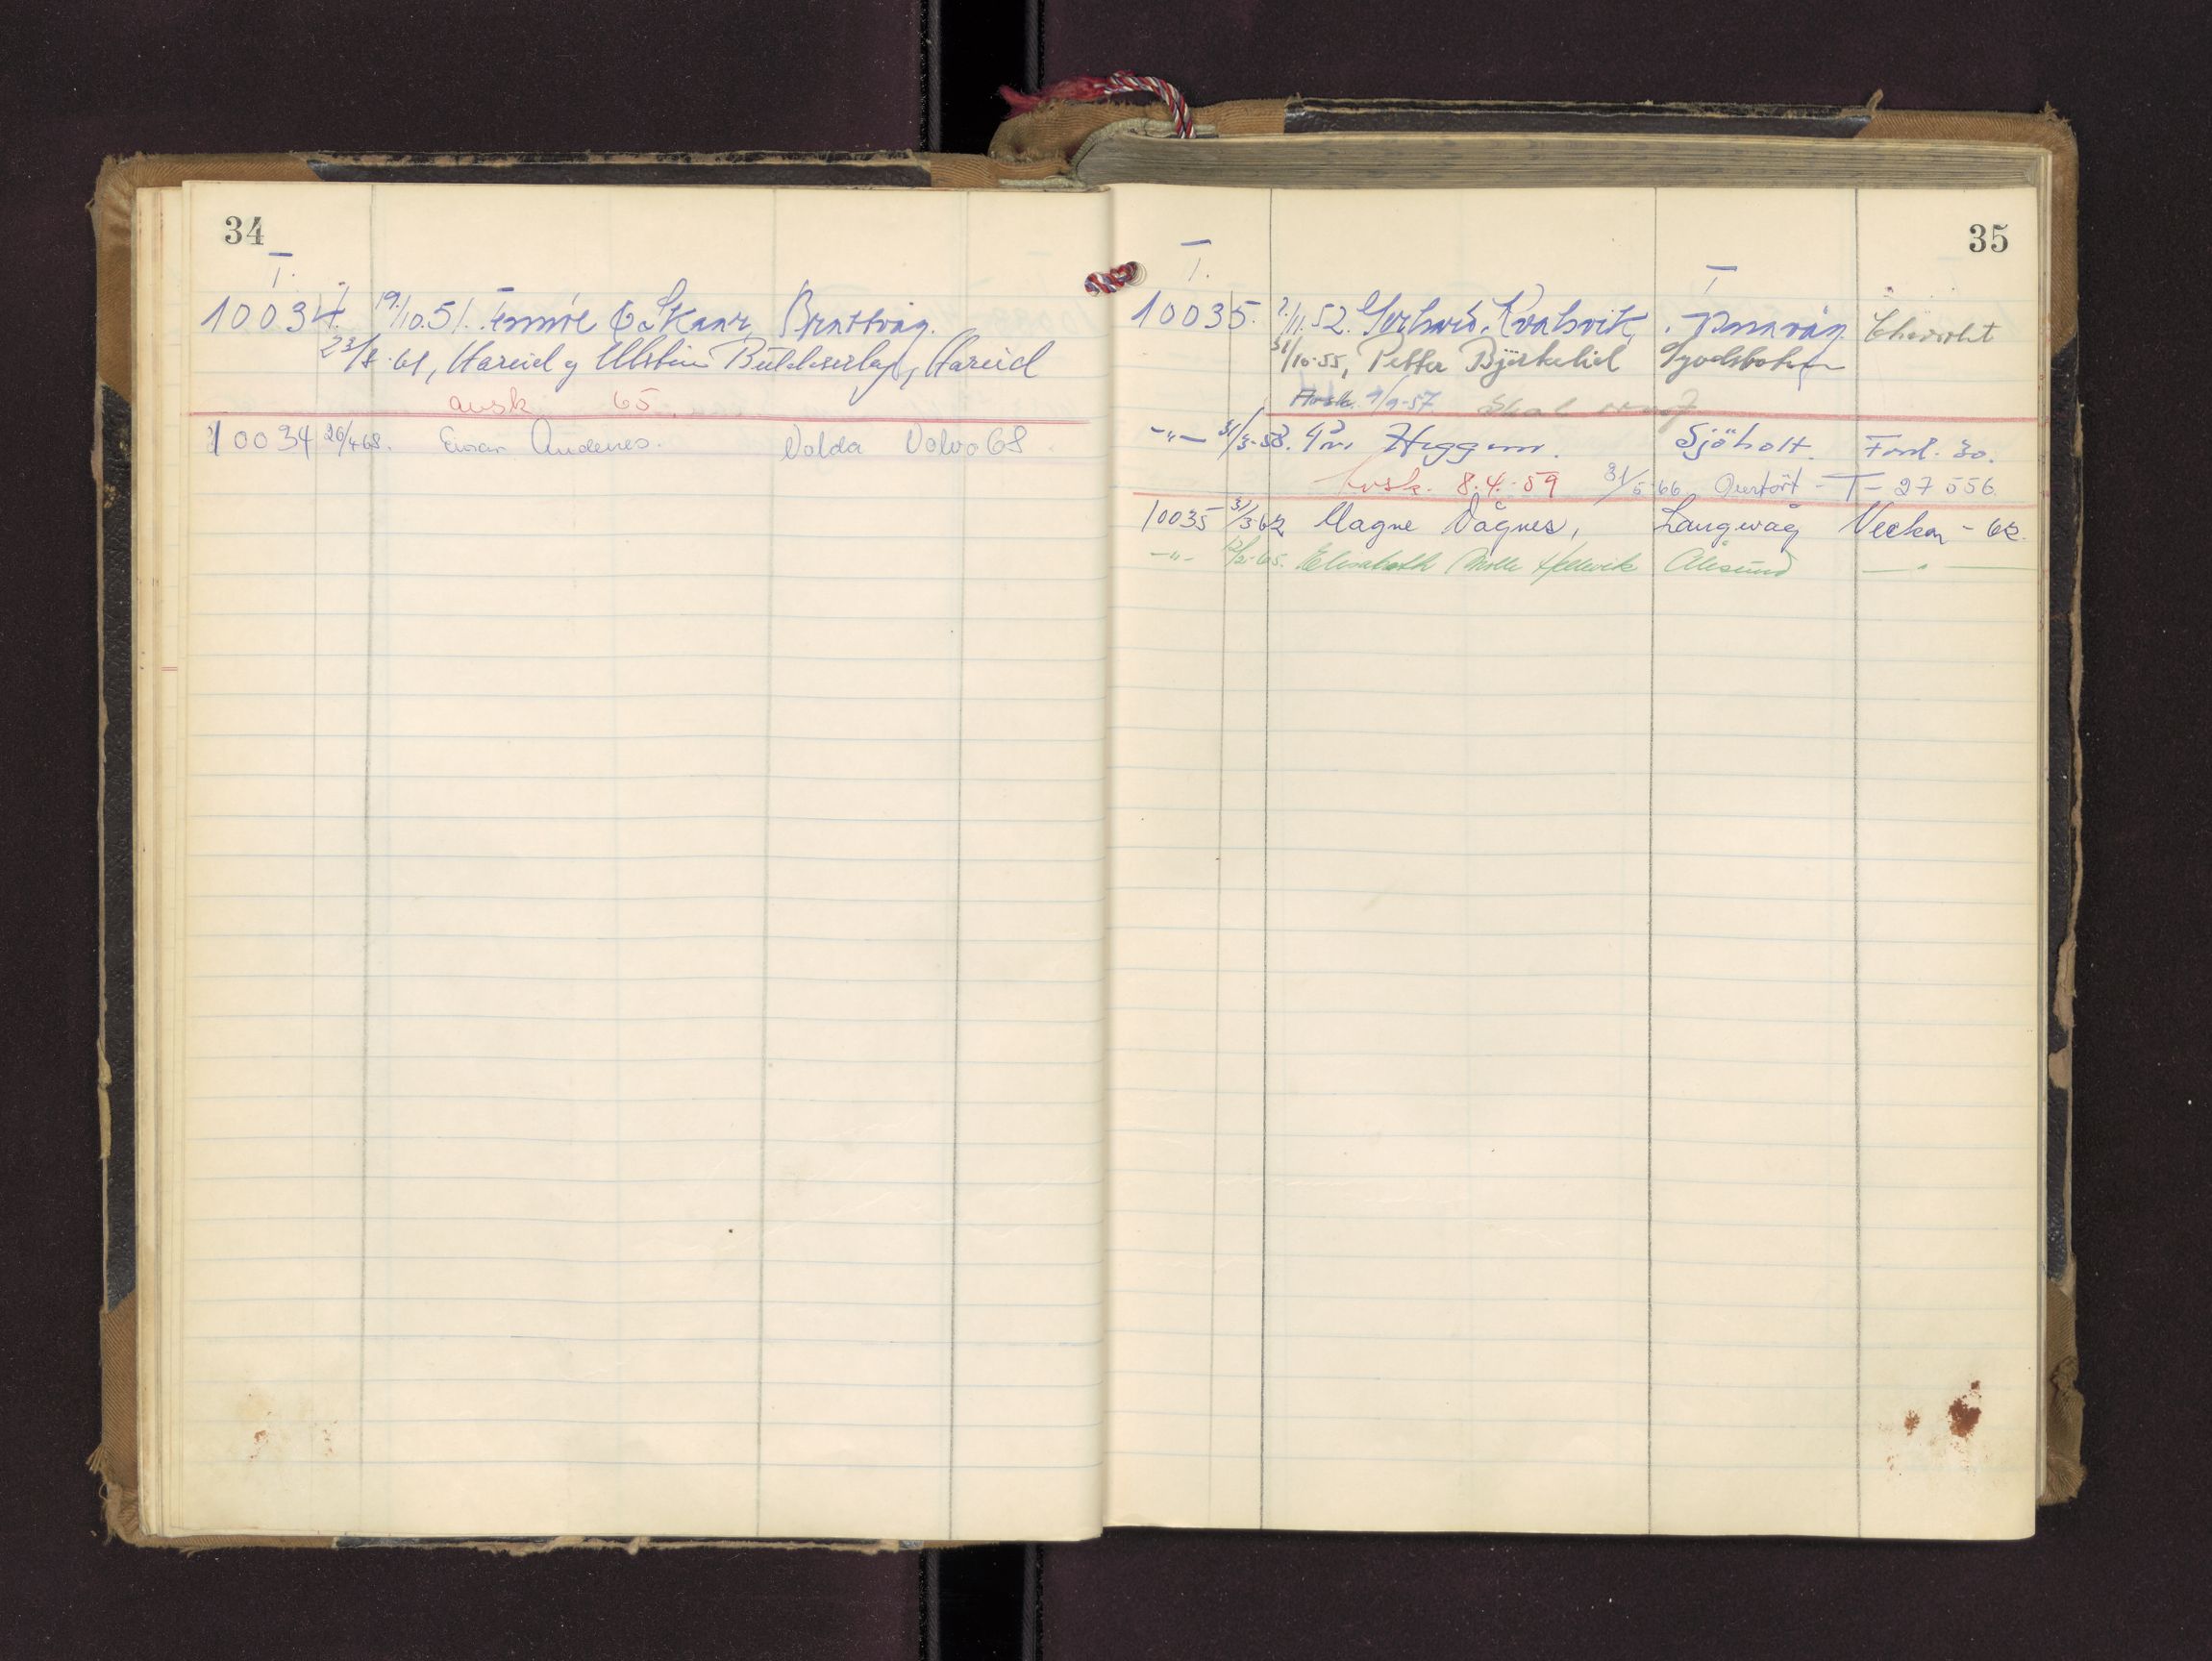 34
T.
10034. 19/10.51. Brattvåg.
23/8-61, Hareid og Ulstein Billelserlag, Hareid
avsk 65.
10034 26/4 68. Einar Andenes. Volda Volvo 68
35
T. T
10035. 7/11.52. Gerhard Kvalsvik, Tjørvåg. Chevrolet
31/10-55, Petter Bjørkelid Syvdsbotn
Avsk. 4/9-57 Skal
-"- 31/3-58. Heggem. Sjöholt. Ford. 30.
Avsk. 8.4.-59 31/5-66 Overfört - T- 27556
10035 31/3-62 Magne Vågnes, Langevåg Vectura - 62.
-"- 12/2-65. Elisabeth Molle Hellevik Ålesund -"-